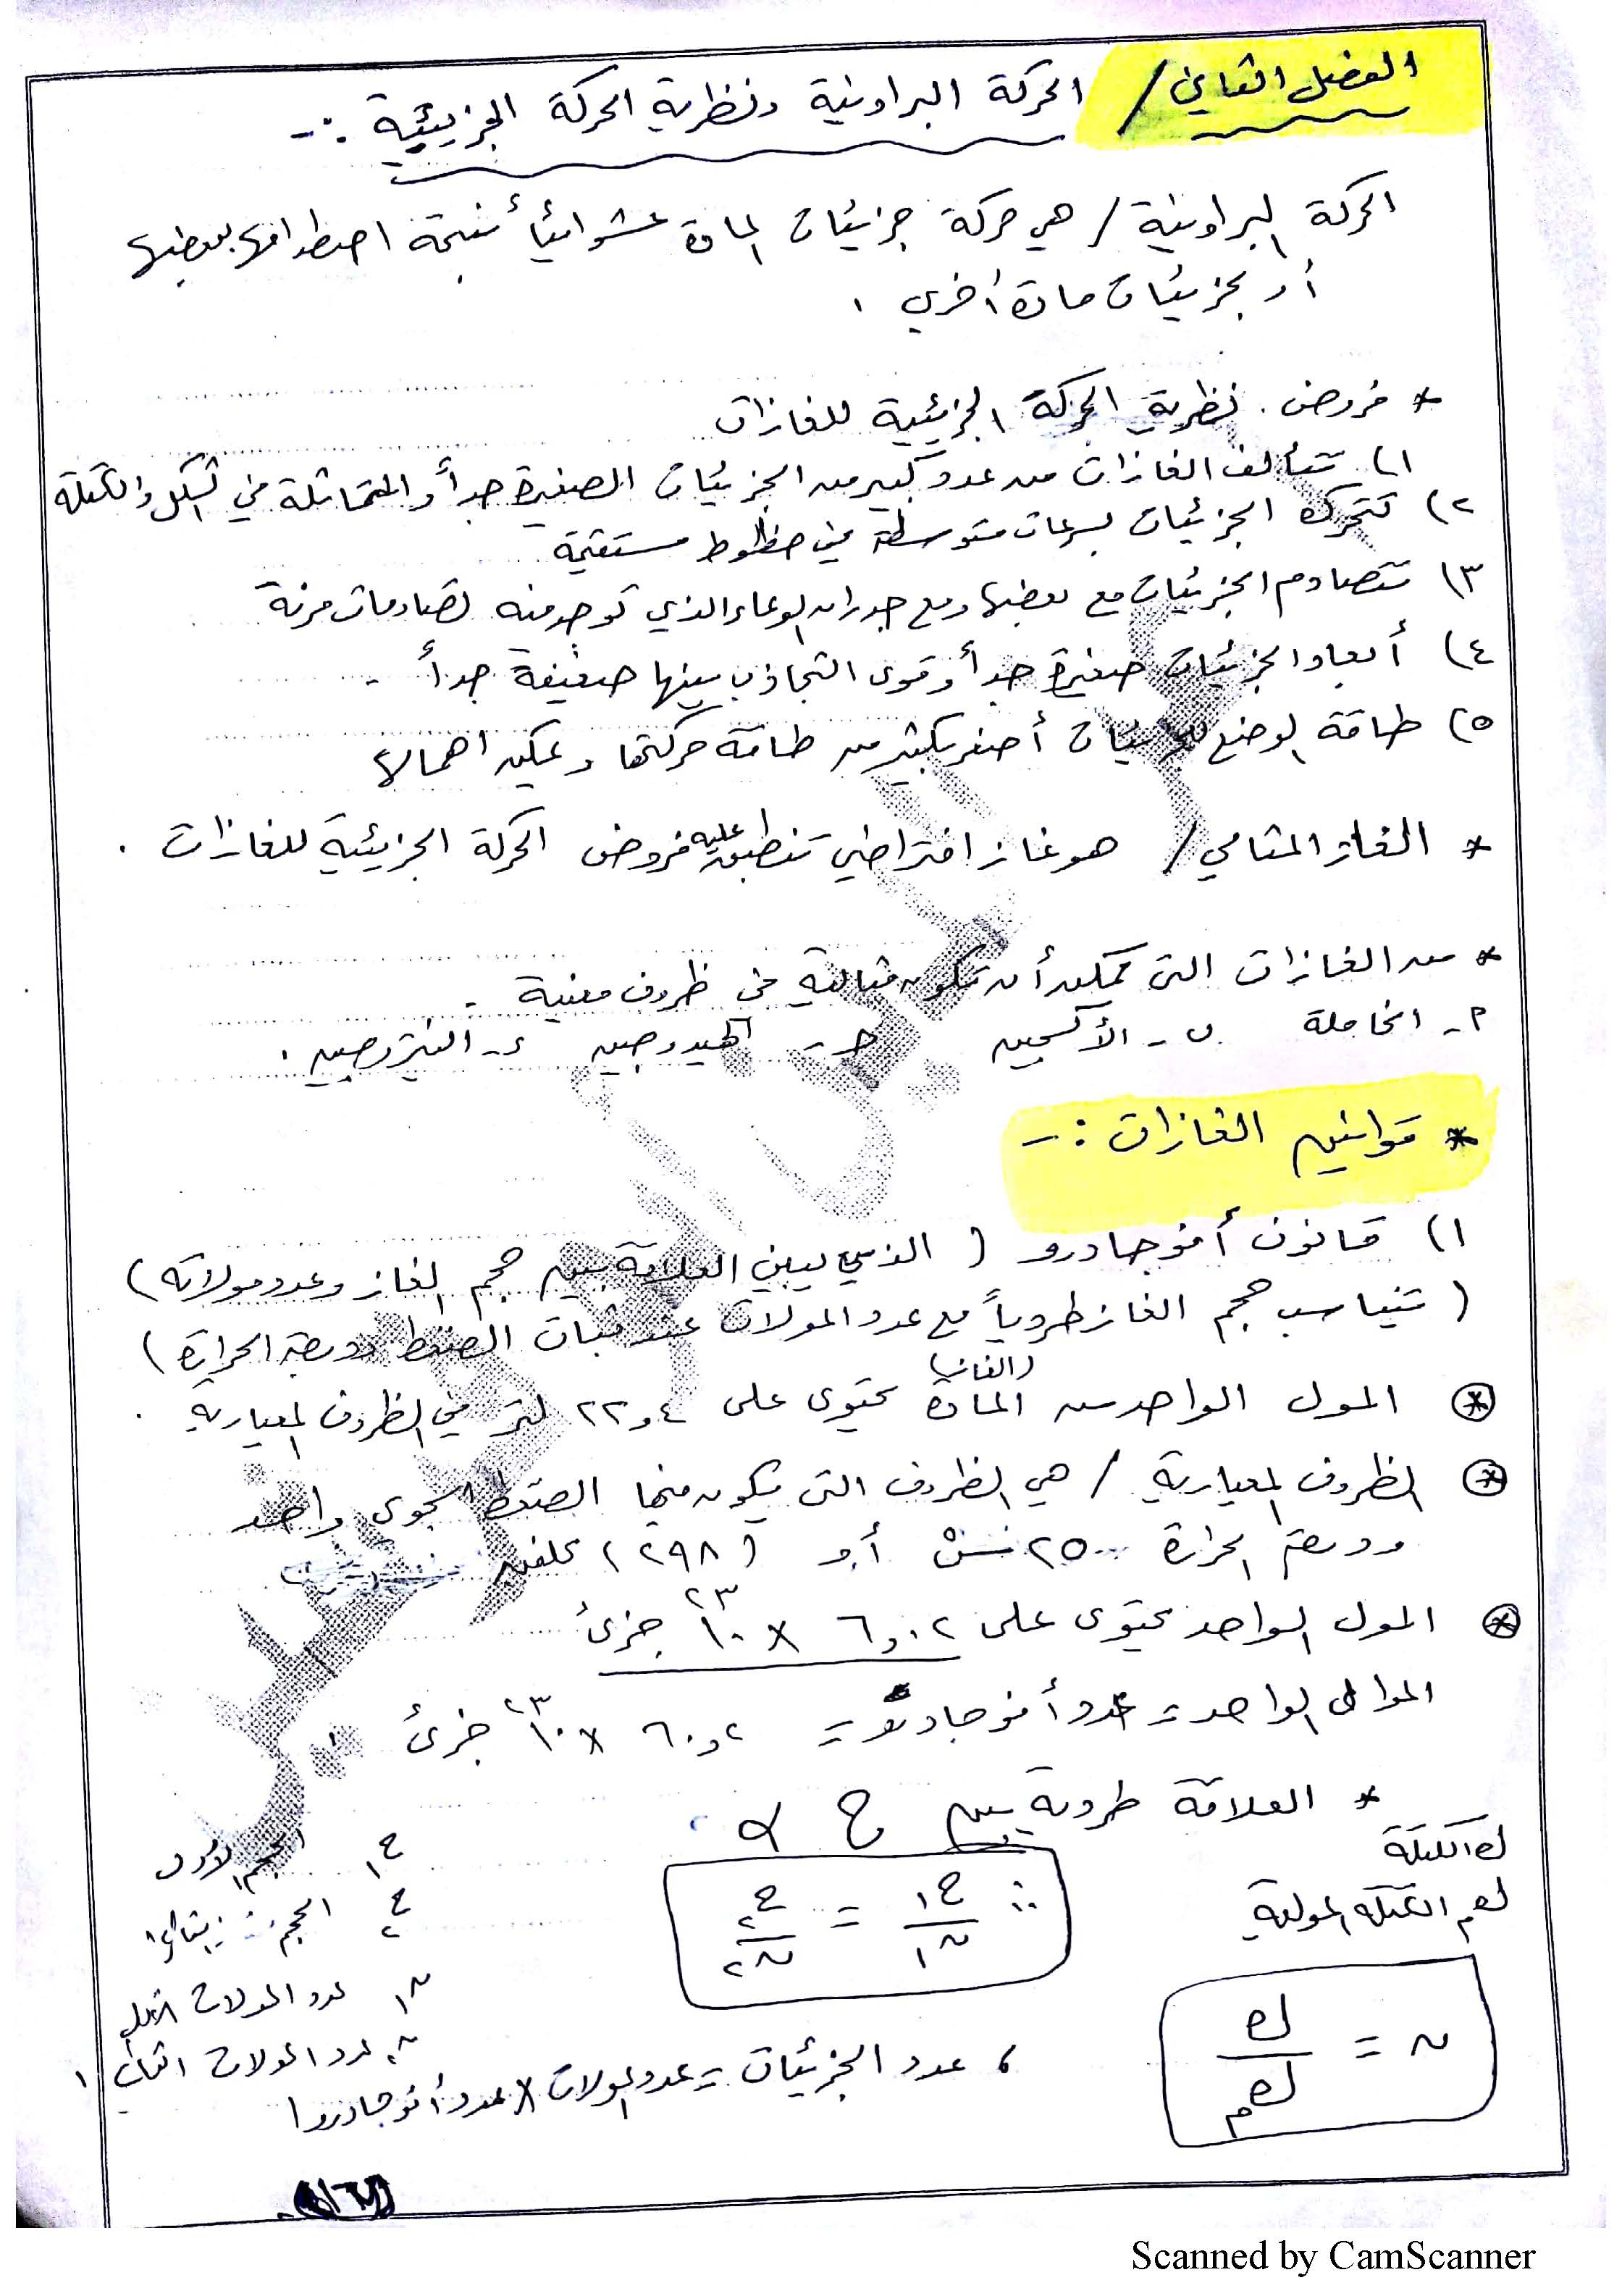 الفصل الثاني / الحركة البراونية ونظرية الحركة الجزيئية :-
الحركة البراونية / هي حركة جزيئات المادة عشوائياً نتيجة اصطدامها ببعضها
أو بجزيئات مادة أخرى .
* فروض نظرية الحركة الجزيئية للغازات
١) تتألف الغازات من عدد كبير من الجزيئات الصغيرة جداً والمتماثلة في الشكل والكتلة
٢) تتحرك الجزيئات بسرعات متوسطة في خطوط مستقيمة
٣) تتصادم الجزيئات مع بعضها ومع جدران الوعاء الذي توجد فيه تصادمات مرنة
٤) أبعاد الجزيئات صغيرة جداً وقوى التجاذب بينها ضعيفة جداً .
٥) طاقة الوضع للجزيئات أصغر بكثير من طاقة حركتها ويمكن اهمالها
* الغاز المثالي / هو غاز افتراضي تنطبق عليه فروض الحركة الجزيئية للغازات .
* من الغازات التي يمكن أن تكون مثالية في ظروف معينة .
٢ - الخاملة ب - الأكسجين ح - الهيدروجين ء - النيتروجين .
* قوانين الغازات :-
١) قانون أفوجادرو ( الذي يبين العلاقة بين حجم الغاز وعدد مولاته )
( تتناسب حجم الغاز طردياً مع عدد المولات عند ثبات الضغط ودرجة الحرارة )
* المول الواحد من المادة (الغاز) يحتوى على ٢٢,٤ لتر في الظروف المعيارية .
* الظروف المعيارية / هي الظروف التي يكون فيها الضغط الجوي واحد
ودرجة الحرارة ٢٥ س° أو (٢٩٨) كلفن
* المول الواحد يحتوى على ٦,٠٢ × ١٠^٢٣ جزئ
المول الواحد = عدد أفوجادرو = ٦,٠٢ × ١٠^٢٣ جزئ
* العلاقة طردية بين ح ∝
∴ ح١/ن١ = ح٢/ن٢
ح١ الحجم الأول
ح٢ الحجم الثاني
ن١ عدد المولات الأول
ن٢ عدد المولات الثاني
ك الكتلة
كم الكتلة المولية
ن = ك/كم
، عدد الجزيئات = عدد المولات × عدد أفوجادرو
Scanned by CamScanner